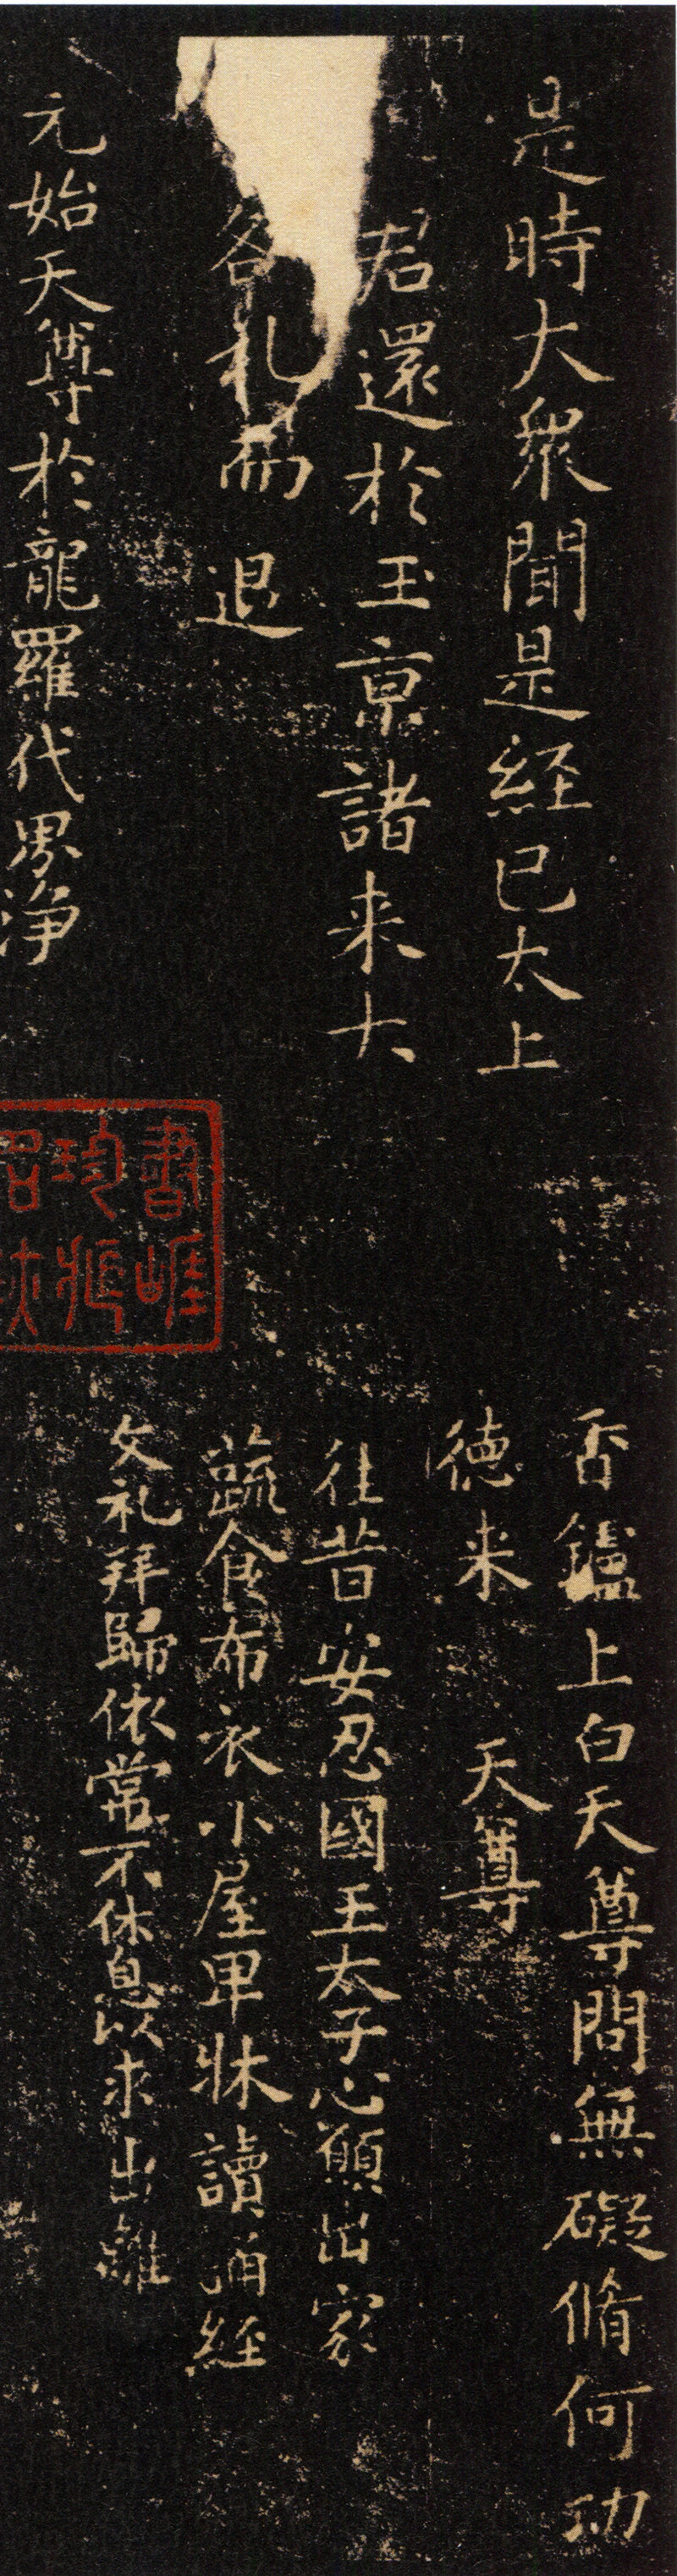 是時大衆聞是経已太上
君還於玉亰諸来大
各礼而退
元始天尊於龍羅代界净
香鑪上白天尊問無礙脩何功
徳来 天尊
往昔安忍國王太子心願出家
蔬食布衣小屋甲牀讀誦経
文礼拜歸依常不休息以求出離
書崖
珍藏